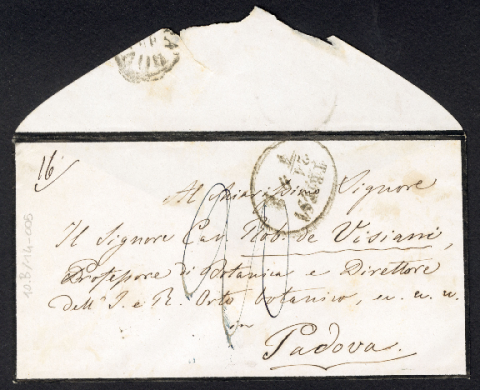 16
Al Chiarissimo Signore
Il Signore Cav. Nob. de Visiani,
Professore di Botanica e Direttore
dell' I. e R. Orto botanico, ec. ec. ec.
in
Padova.
10.B/14-008